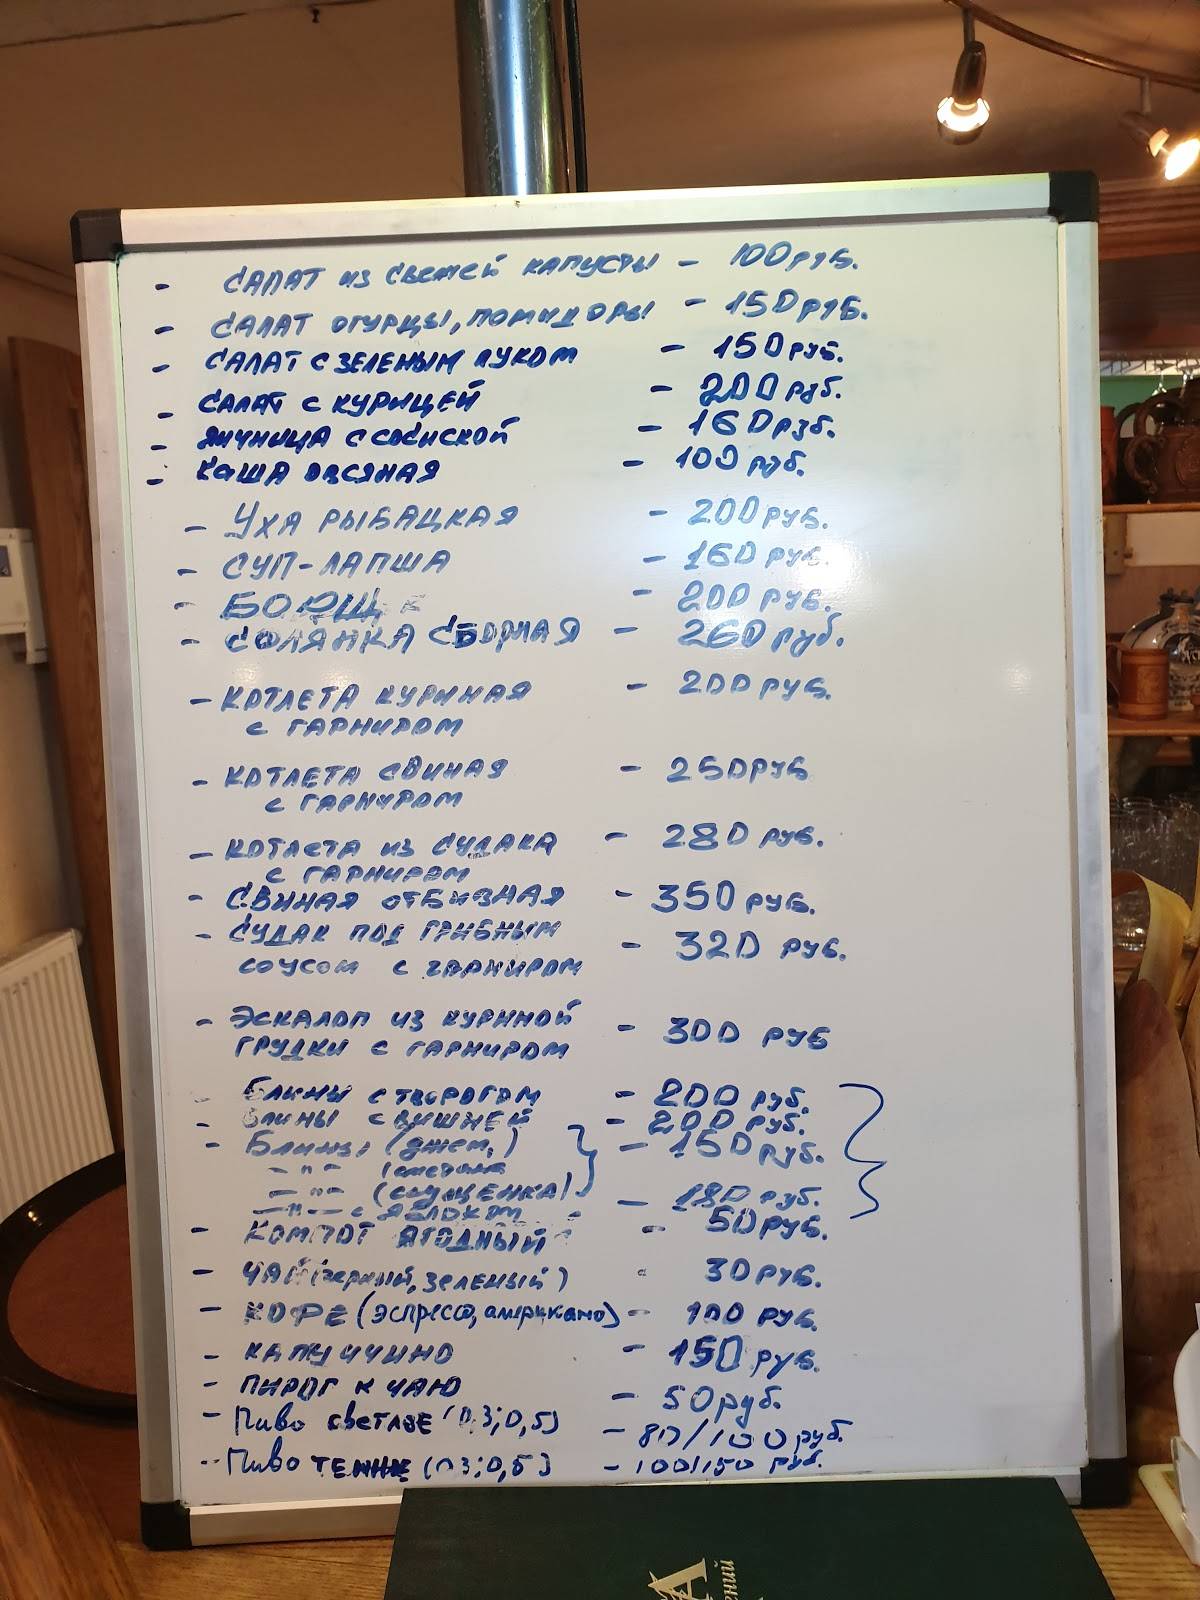 - САЛАТ ИЗ СВЕЖЕЙ КАПУСТЫ - 100 руб.
- САЛАТ ОГУРЦЫ, ПОМИДОРЫ - 150 руб.
- САЛАТ С ЗЕЛЕНЫМ ЛУКОМ - 150 руб.
- САЛАТ С КУРИЦЕЙ - 200 руб.
- ЯИЧНИЦА С СОСИСКОЙ - 160 руб.
- КАША ОВСЯНАЯ - 100 руб.
- УХА РЫБАЦКАЯ - 200 руб.
- СУП-ЛАПША - 160 руб.
- БОРЩ - 200 руб.
- СОЛЯНКА СБОРНАЯ - 260 руб.
- КОТЛЕТА КУРИНАЯ - 200 руб.
С ГАРНИРОМ
- КОТЛЕТА СВИНАЯ - 250 руб
С ГАРНИРОМ
- КОТЛЕТА ИЗ СУДАКА - 280 руб.
С ГАРНИРОМ
- СВИНАЯ ОТБИВНАЯ - 350 руб.
- СУДАК ПОД ГРИБНЫМ
СОУСОМ С ГАРНИРОМ - 320 руб.
- ЭСКАЛОП ИЗ КУРИНОЙ
ГРУДКИ С ГАРНИРОМ - 300 руб
- БЛИНЫ С ТВОРОГОМ - 200 руб.
- БЛИНЫ С ВИШНЕЙ - 200 руб.
- БЛИНЫ (джем,) - 150 руб.
- " - (сметана
- " - (СГУЩЕНКА)
- " - С ЯБЛОКОМ - 180 руб.
- КОМПОТ ЯГОДНЫЙ - 50 руб.
- ЧАЙ (черный, зеленый) - 30 руб.
- КОФЕ (эспрессо, американо) - 100 руб.
- КАПУЧЧИНО - 150 руб.
- ПИРОГ К ЧАЮ - 50 руб.
- Пиво светлое (0,3; 0,5) - 80/100 руб.
- Пиво (0,3; 0,5) - 100/150 руб.
А